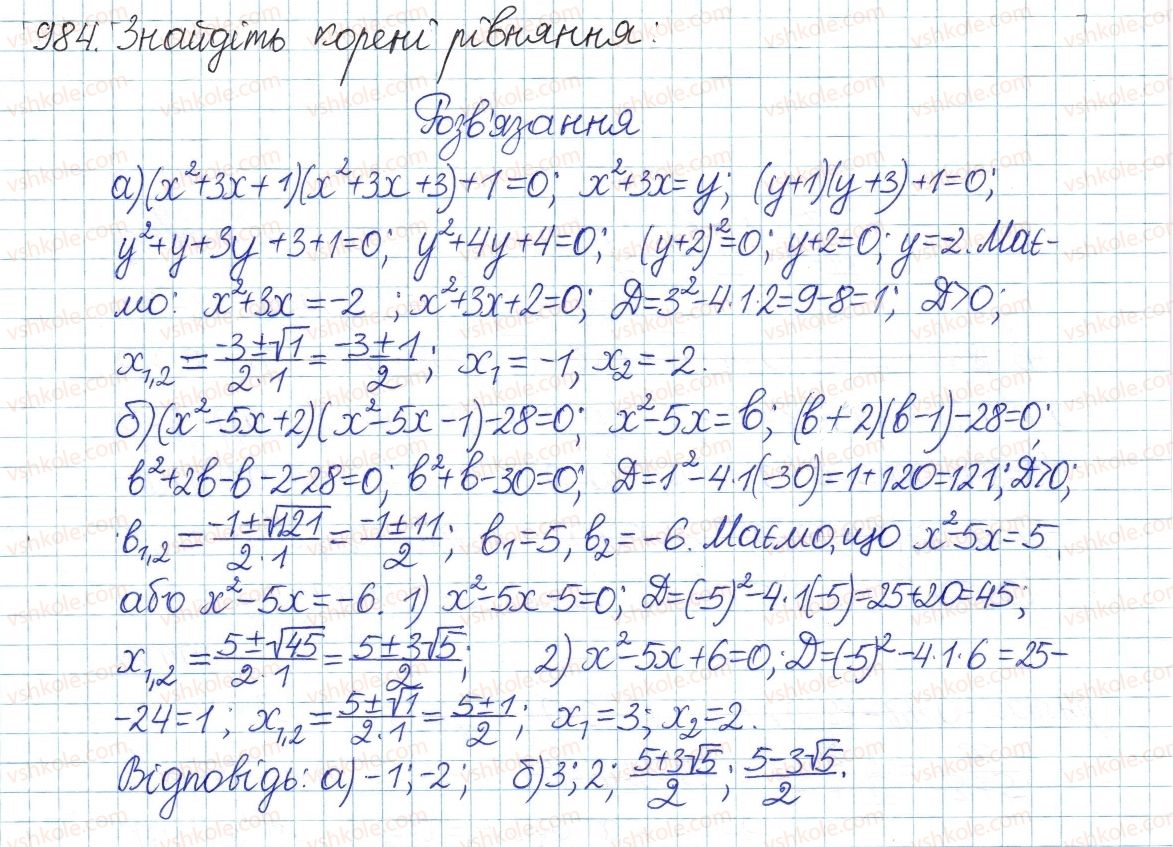 984. Знайдіть корені рівняння:
Розв'язання
а) (x²+3x+1)(x²+3x+3)+1=0; x²+3x=y; (y+1)(y+3)+1=0;
y²+y+3y+3+1=0; y²+4y+4=0; (y+2)²=0; y+2=0; y=-2. Має-
мо: x²+3x=-2; x²+3x+2=0; D=3²-4·1·2=9-8=1; D>0;
x₁,₂ = (-3±√1)/(2·1) = (-3±1)/2; x₁=-1, x₂=-2.
б) (x²-5x+2)(x²-5x-1)-28=0; x²-5x=b; (b+2)(b-1)-28=0;
b²+2b-b-2-28=0; b²+b-30=0; D=1²-4·1(-30)=1+120=121; D>0;
b₁,₂ = (-1±√121)/(2·1) = (-1±11)/2; b₁=5, b₂=-6. Маємо, що x²-5x=5
або x²-5x=-6. 1) x²-5x-5=0; D=(-5)²-4·1(-5)=25+20=45;
x₁,₂ = (5±√45)/(2·1) = (5±3√5)/2; 2) x²-5x+6=0; D=(-5)²-4·1·6=25-
-24=1; x₁,₂ = (5±√1)/(2·1) = (5±1)/2; x₁=3; x₂=2.
Відповідь: а) -1; -2; б) 3; 2; (5+3√5)/2; (5-3√5)/2.